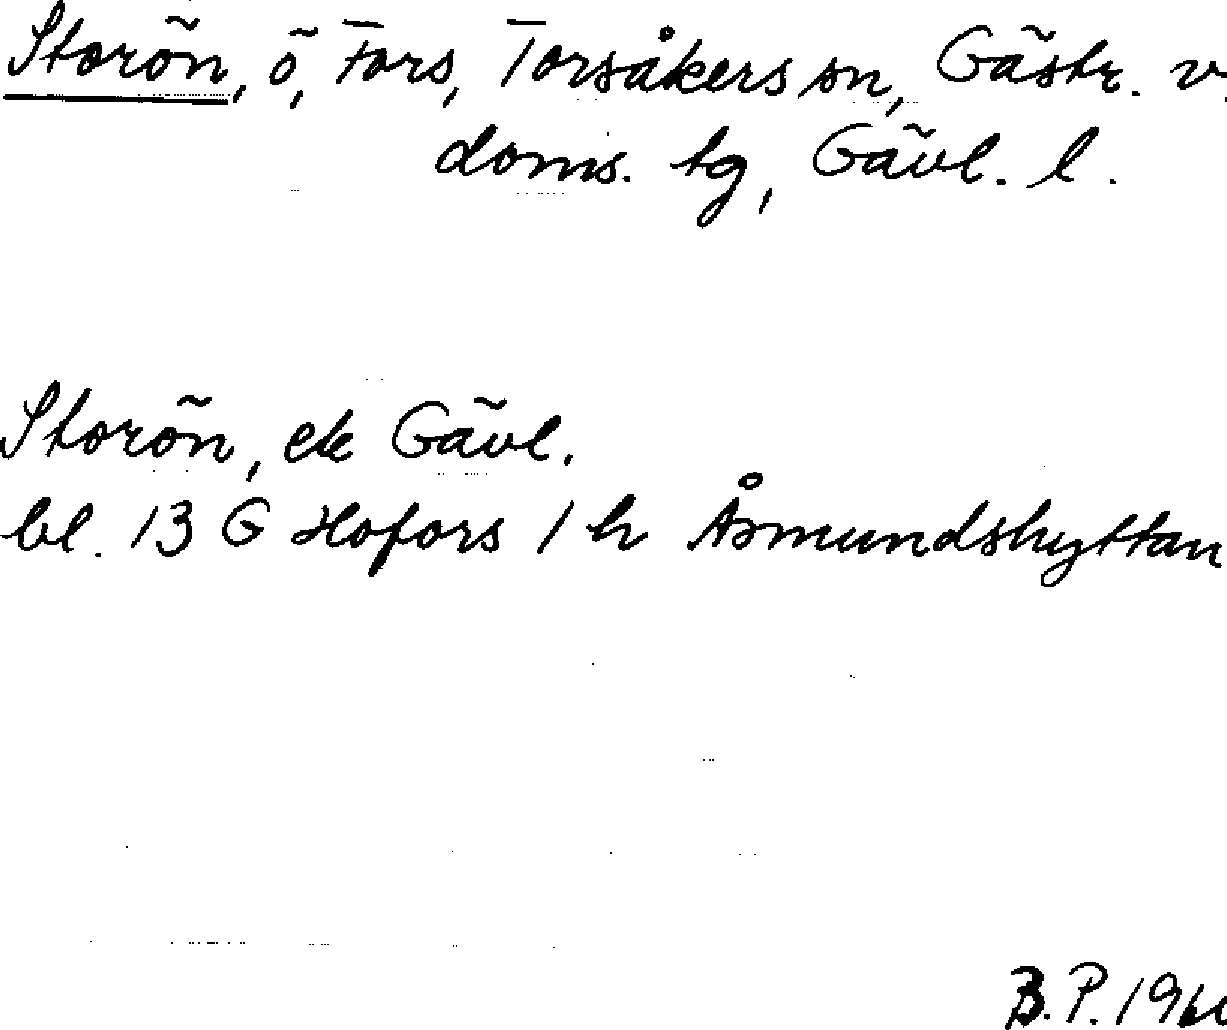 Storön, ö, Fors, Torsåkers sn, Gästr. v.
doms. tg, Gävl. l.
Storön, ek Gävl.
bl. 13 G Hofors 1 h Åsmundshyttan
B. P. 196